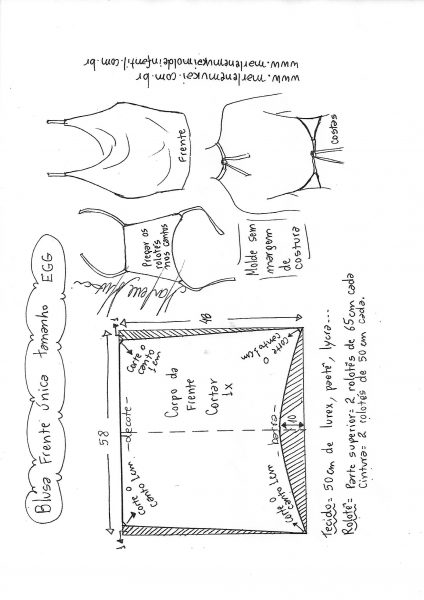 Blusa Frente única tamanho EGG
58
1
1
decote
Corte o canto 1cm
Corte o canto 1cm
Corpo da
Frente
Cortar
1x
48
Corte o canto 1cm
Corte o canto 1cm
barra
10
Preparar os
rolotês
nos cantos
Molde sem
margem
de
costura
Frente
Costas
www.marlenemukai.com.br
www.marlenemukaimoldeinfantil.com.br
Tecido= 50cm de lurex, paetê, lycra...
Rolotê= Parte superior= 2 rolotês de 65cm cada
Cintura= 2 rolotês de 50 cm cada.